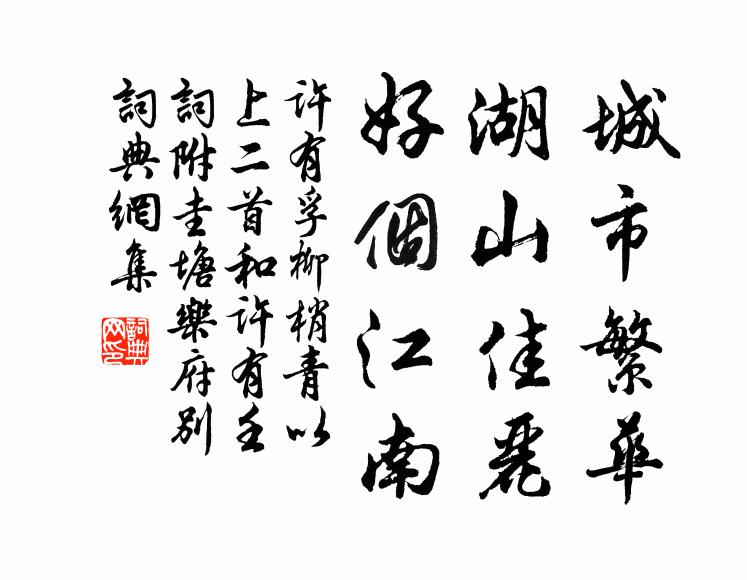 城市繁華
湖山佳麗
好個江南
許有孚柳梢青以
上二首和許有壬
詞附圭塘樂府別
詞典網集
詞典網印